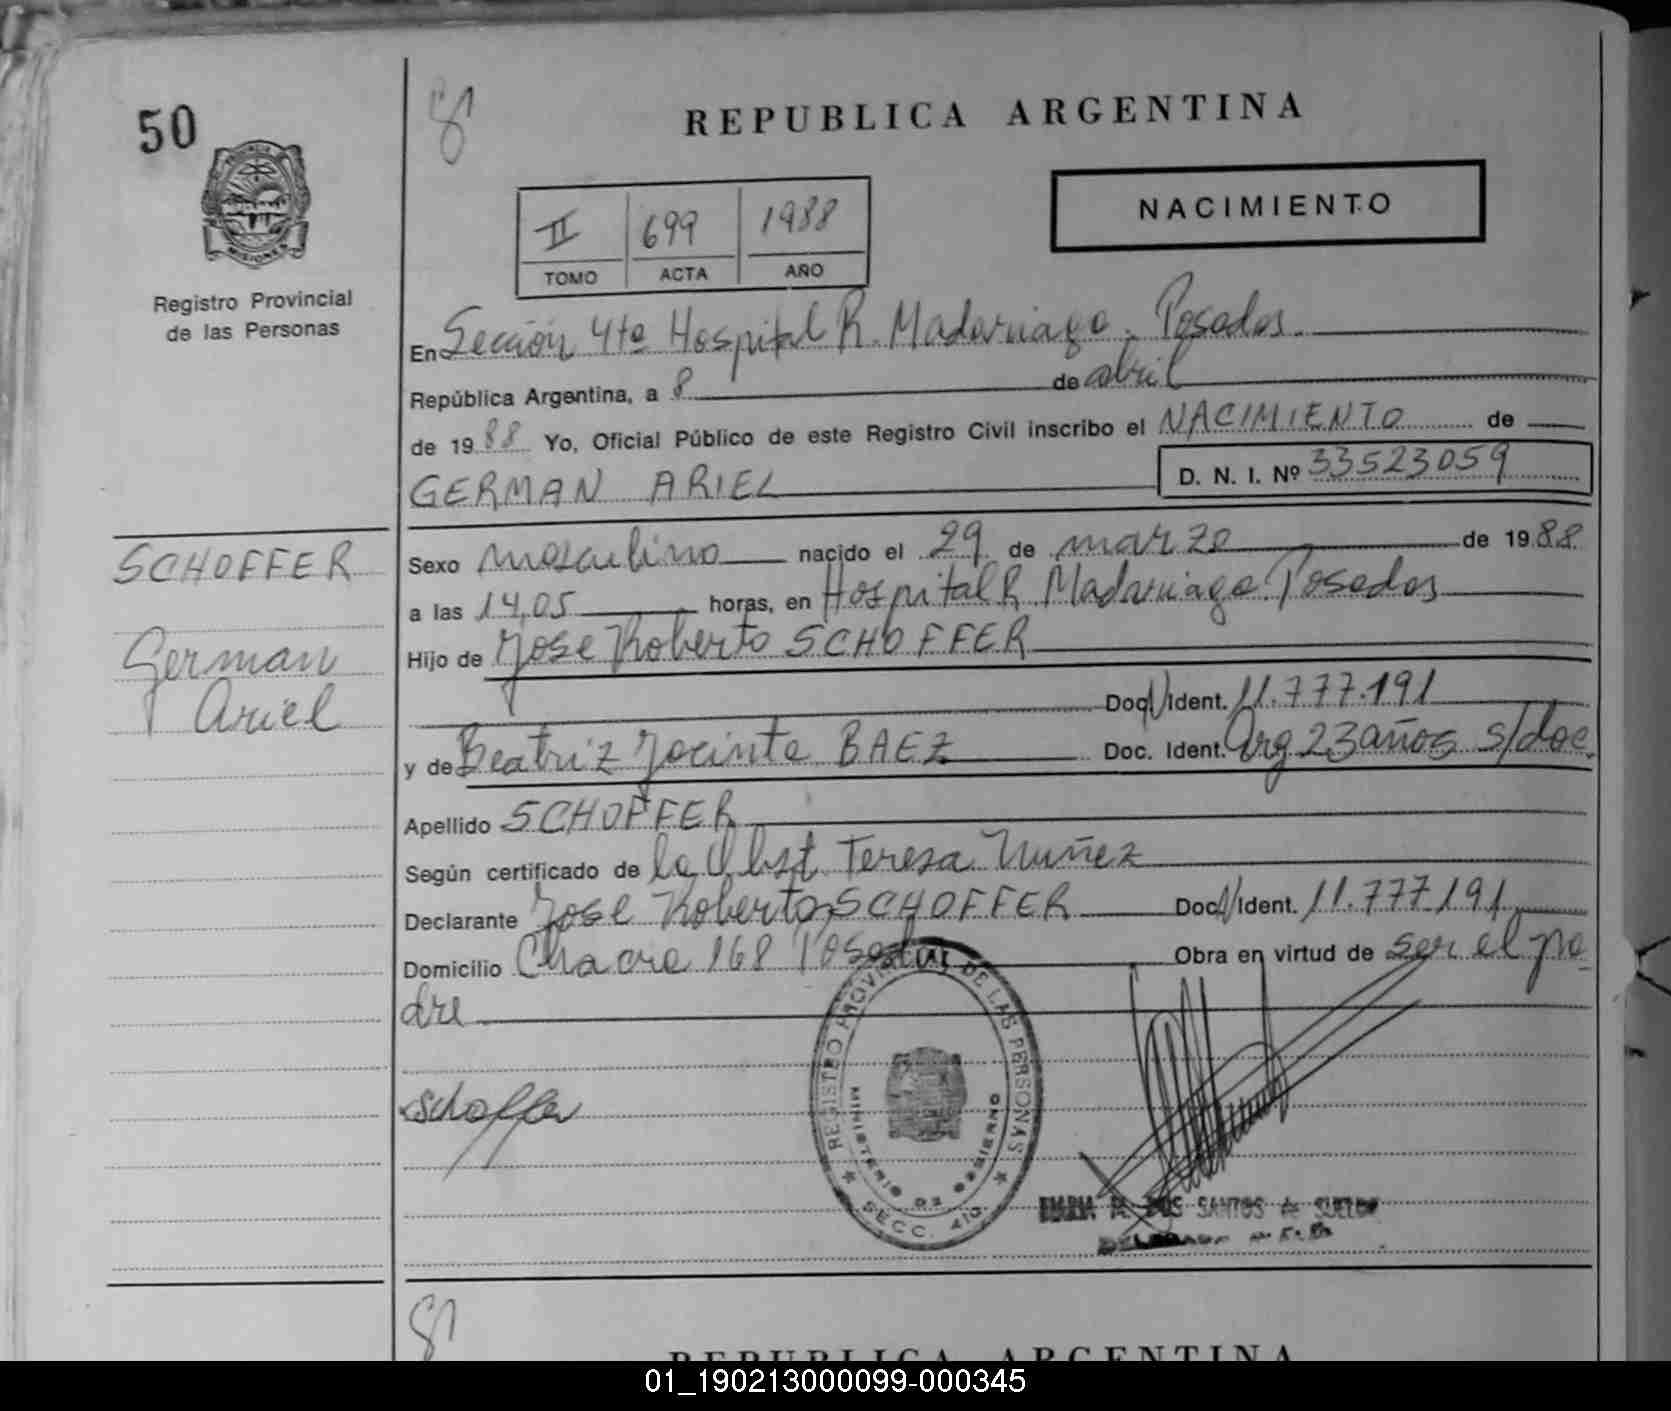 50
REPUBLICA ARGENTINA
PROVINCIA
MISIONES
Registro Provincial
de las Personas
NACIMIENTO
II 699 1988
TOMO ACTA AÑO
En Sección 4ta Hospital R. Madariaga. Posadas.
República Argentina, a 8 de abril
de 1988 Yo, Oficial Público de este Registro Civil inscribo el NACIMIENTO de
GERMAN ARIEL D. N. I. Nº 33523059
SCHOFFER
German
Ariel
Sexo masculino nacido el 29 de marzo de 1988
a las 14,05 horas, en Hospital R. Madariaga. Posadas
Hijo de Jose Roberto SCHOFFER
Doc. Ident. 11.777.191
y de Beatriz Jacinta BAEZ Doc. Ident. Arg 23 años s/doc.
Apellido SCHOFFER
Según certificado de la Obst. Teresa Nuñez
Declarante Jose Roberto SCHOFFER Doc. Ident. 11.777.191
Domicilio Chacra 168 Posadas Obra en virtud de ser el pa
dre
Schoffer
REGISTRO PROVINCIAL DE LAS PERSONAS
MINISTERIO DE GOBIERNO
SECC. 4ta
DOS SANTOS de
REPUBLICA ARGENTINA
01_190213000099-000345